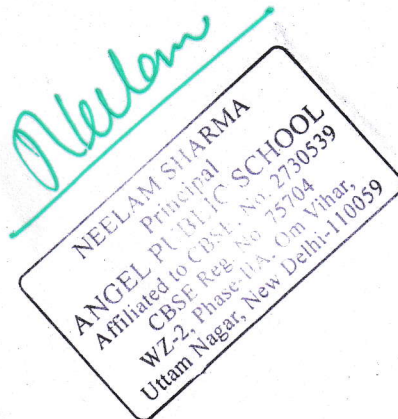 Neelam
NEELAM SHARMA
Principal
ANGEL PUBLIC SCHOOL
Affiliated to CBSE, No. 2730539
CBSE Reg. No. 75704
WZ-2, Phase-IIA, Om Vihar,
Uttam Nagar, New Delhi-110059